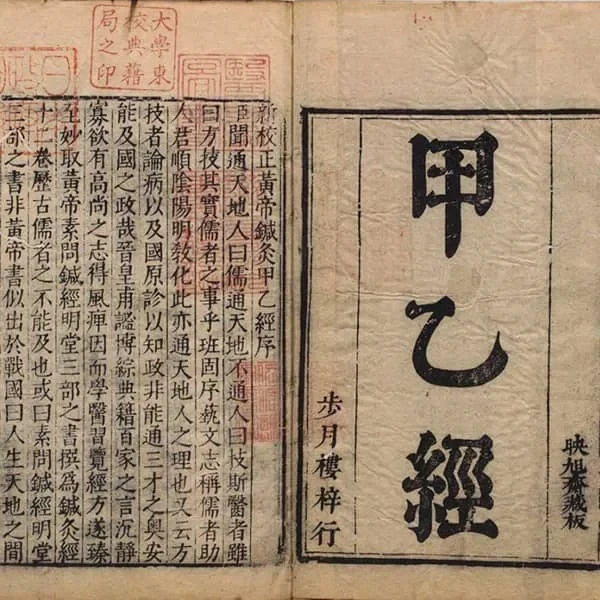 映旭齋藏板
甲乙經
步月樓梓行
大學東
校典藉
局之印
新校正黃帝鍼灸甲乙經序
臣聞通天地人曰儒通天地不通人曰技斯醫者雖
曰方技其實儒者之事乎班固序蓺文志稱儒者助
人君順陰陽明教化此亦通天地人之理也又云方
技者論病以及國原診以知政非能通三才之奥安
能及國之政哉晉皇甫謐博綜典籍百家之言沉靜
寡欲有高尚之志得風痺因而學醫習覽經方遂臻
至妙取黃帝素問鍼經明堂三部之書撰爲鍼灸經
十二卷歷古儒者之不能及也或曰素問鍼經明堂
三部之書非黃帝書似出於戰國曰人生天地之間